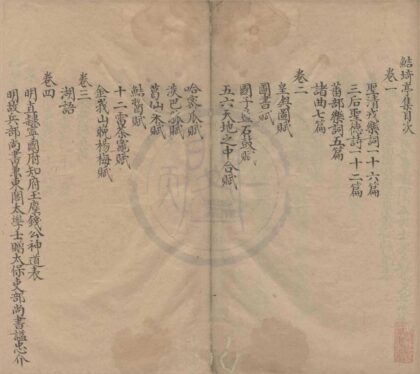 鮚埼亭集目次
卷一
聖清戎樂詞一十六篇
三后聖德詩一十二篇
蕃部樂詞五篇
諸曲七篇
卷二
皇輿圖賦
國書賦
國子監石鼓賦
五六天地之中合賦
哈密瓜賦
淡巴菰賦
葛仙米賦
鮚醬賦
十二雷茶竈賦
金峨山晚楊梅賦
卷三
湖語
卷四
明直隸寧國府知府玉塵錢公神道表
明故兵部尚書兼東閣大學士贈太保吏部尚書諡忠介